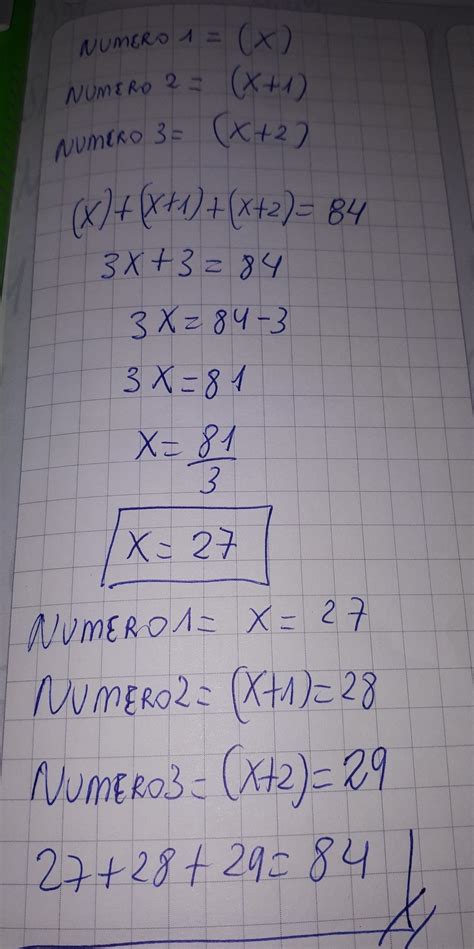 NUMERO 1 = (X)
NUMERO 2 = (X+1)
NUMERO 3 = (X+2)
(X)+(X+1)+(X+2)= 84
3X+3=84
3X=84-3
3X=81
X= 81/3
X= 27
NUMERO1= X= 27
NUMERO2=(X+1)=28
NUMERO3=(X+2)=29
27+28+29=84